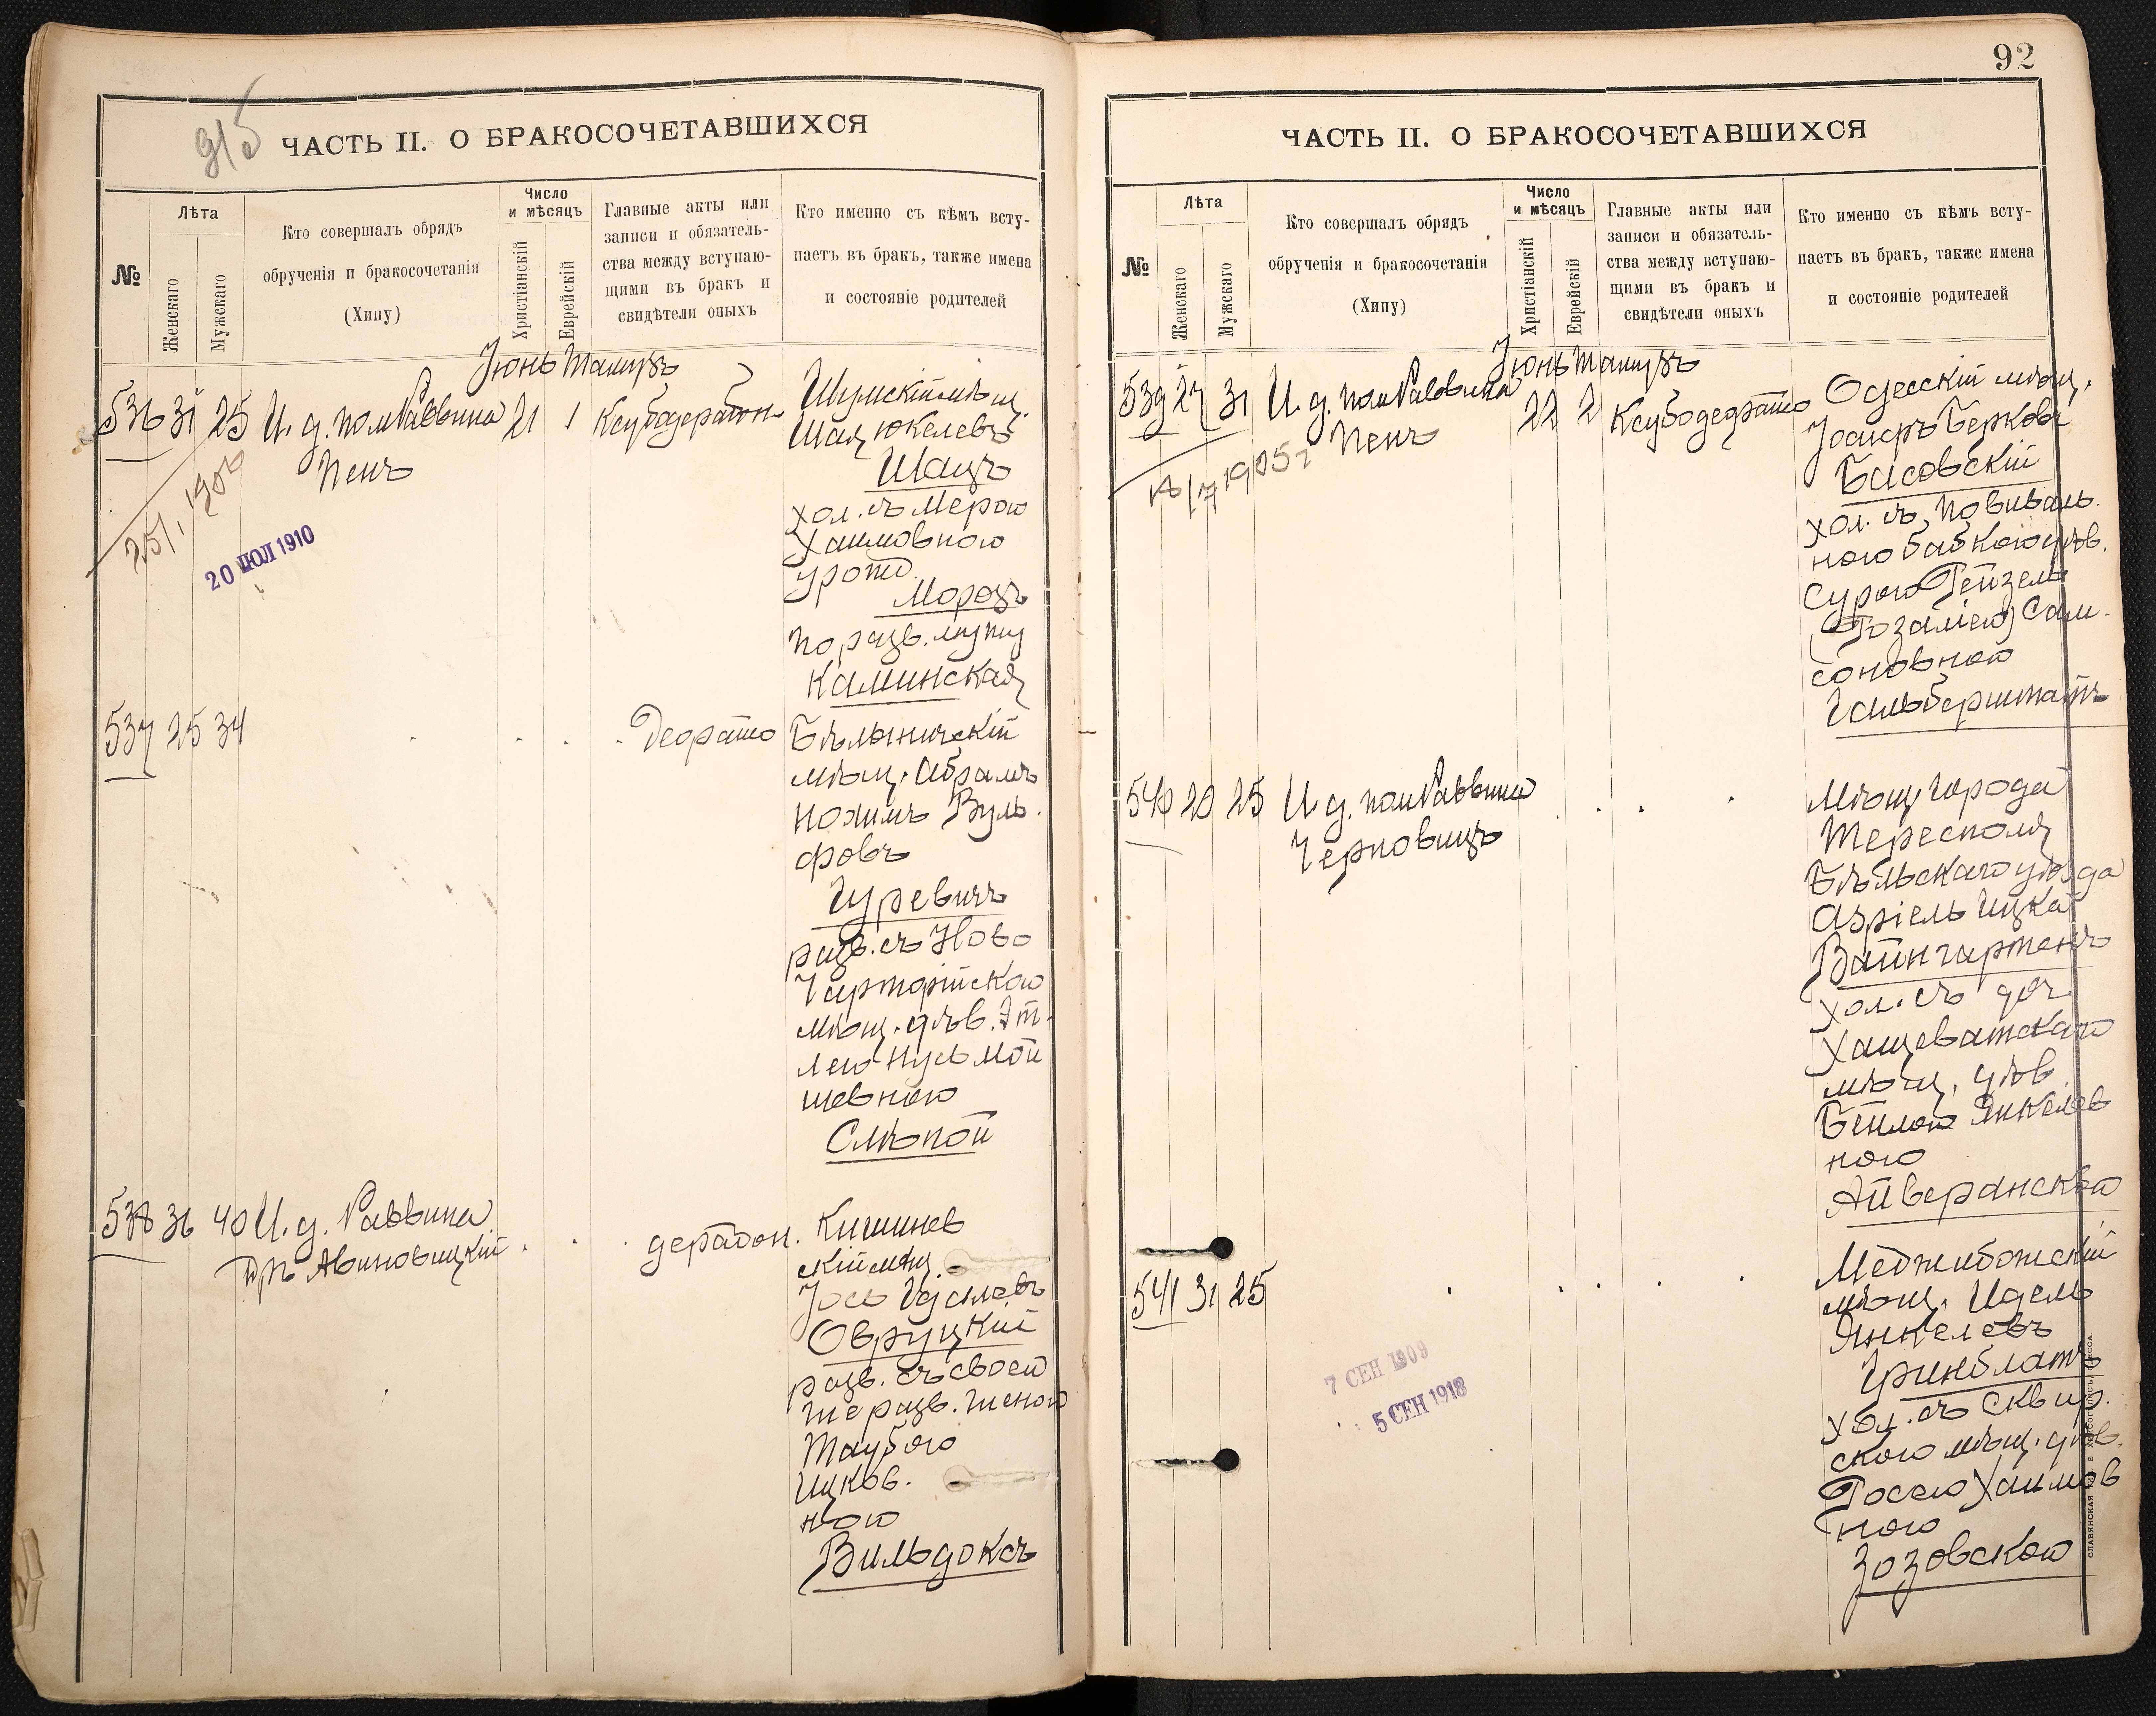 915
ЧАСТЬ II. О БРАКОСОЧЕТАВШИХСЯ
№
Лѣта
Женскаго
Мужскаго
Кто совершалъ обрядъ
обрученія и бракосочетанія
(Хипу)
Число
и мѣсяцъ
Христіанскій
Еврейскій
Главные акты или
записи и обязатель-
ства между вступаю-
щими въ бракъ и
свидѣтели оныхъ
Кто именно съ кѣмъ всту-
паетъ въ бракъ, также имена
и состояніе родителей
Іюнь Тамузъ
536 31 25 И. д. пом Раввина 21 1
Пенъ
20 ІЮЛ 1910
Шумскій мѣщ.
Шая Юкелевъ
Шацъ
хол. съ Мерою
Хаимовною
урожд.
Морозъ
по разв. мужу
Каминская
537 25 34
Бѣлыничскій
мѣщ. Абрамъ
Нохимъ Вуль
фовъ
Гуревичъ
разв. съ Ново
Чарторійскою
мѣщ. дѣв. Эт-
лею Нусь Мой
шевною
Слѣпой
538 36 40 И. д. Раввина
Д-ръ Авиновицкій
Кишинев
скій мѣщ.
Іось Иделевъ
Овруцкій
разв. съ своей
же разв. женою
Таубою
Ицков.
ною
Вильдоксъ
92
ЧАСТЬ II. О БРАКОСОЧЕТАВШИХСЯ
№
Лѣта
Женскаго
Мужскаго
Кто совершалъ обрядъ
обрученія и бракосочетанія
(Хипу)
Число
и мѣсяцъ
Христіанскій
Еврейскій
Главные акты или
записи и обязатель-
ства между вступаю-
щими въ бракъ и
свидѣтели оныхъ
Кто именно съ кѣмъ всту-
паетъ въ бракъ, также имена
и состояніе родителей
Іюнь Тамузъ
539 27 31 И. д. пом Раввина 22 2
Пенъ
18/7 1905 г
Одесскій мѣщ.
Іосифъ Берковъ
Басовскій
хол. съ повиваль
ною бабкою дѣв.
Сурою Рейзель
(Розаліею) Сам-
соновной
Гальберштатъ
540 20 25 И. д. пом Раввина
Черновицъ
Мѣщ города
Тересполя
Бѣльскаго уѣзда
Азріель Ицка
Вайнгартенъ
хол. съ доч.
Хащеватскаго
мѣщ. дѣв.
Бейлою Янкелев
ною
Айверанской
541 31 25
7 СЕН 1909
5 СЕН 1918
Меджибожскій
мѣщ. Идель
Янкелевъ
Гринблатъ
хол. съ Сквир.
скою мѣщ. дѣв.
Россею Хаимов
ною
Зозовскою